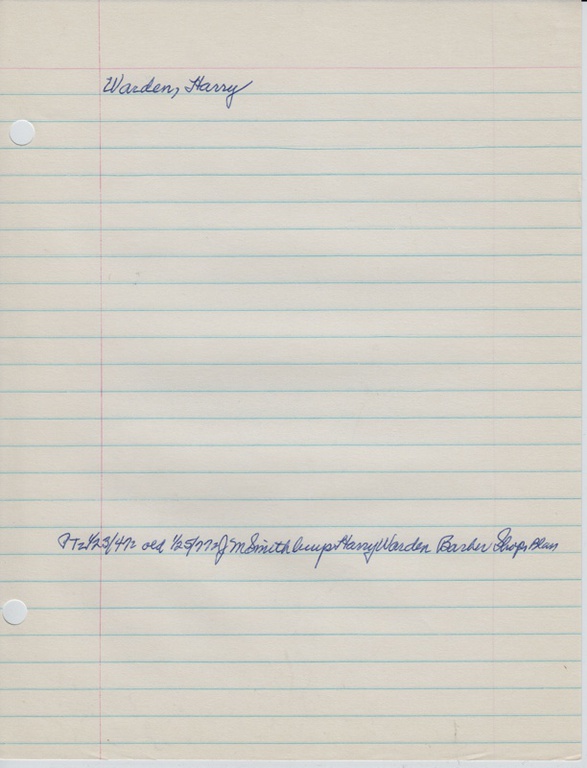 Warden, Harry
1/23/47 old 1/25/77 J M Smith buys Harry Warden Barber Shop